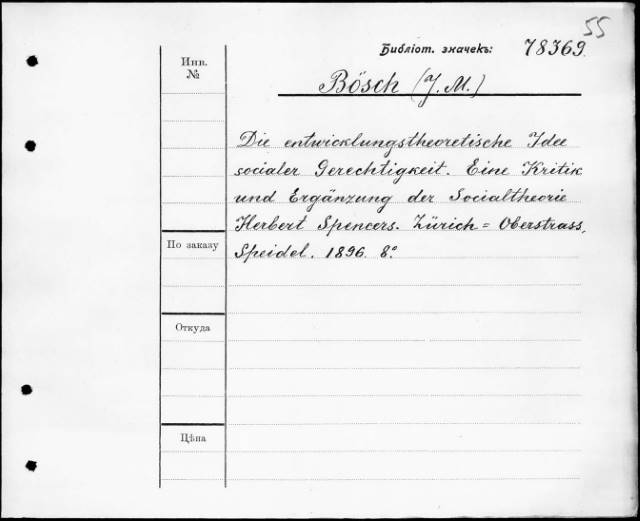 55
Библiот. значекъ: 78369.
Инв.
№
Bösch (J. M.)
Die entwicklungstheoretische Idee
socialer Gerechtigkeit. Eine Kritik
und Ergänzung der Socialtheorie
Herbert Spencers. Zürich = Oberstrass,
Speidel. 1896. 8.°
По заказу
Откуда
Цѣна